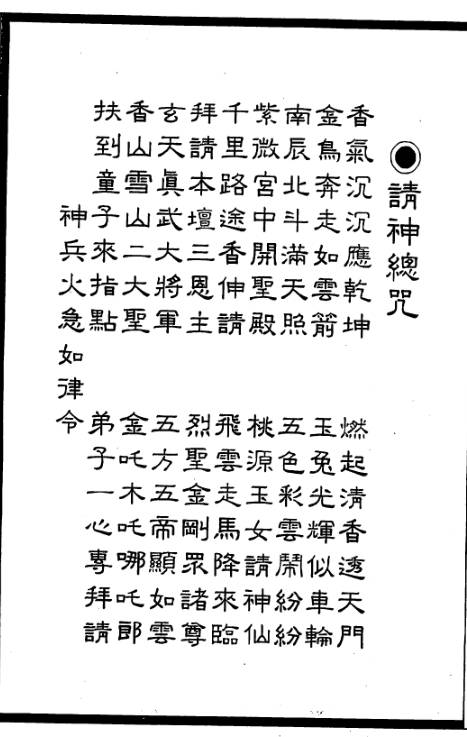 ◉請神總咒
香氣沉沉應乾坤　燃起清香透天門
金鳥奔走如雲箭　玉兔光輝似車輪
南辰北斗滿天照　五色彩雲鬧紛紛
紫微宮中開聖殿　桃源玉女請神仙
千里路途香伸請　飛雲走馬降來臨
拜請本壇三恩主　烈聖金剛眾諸尊
玄天真武大將軍　五方五帝顯如雲
香山雪山二大聖　金吒木吒哪吒郎
扶到童子來指點　弟子一心專拜請
神兵火急如律令